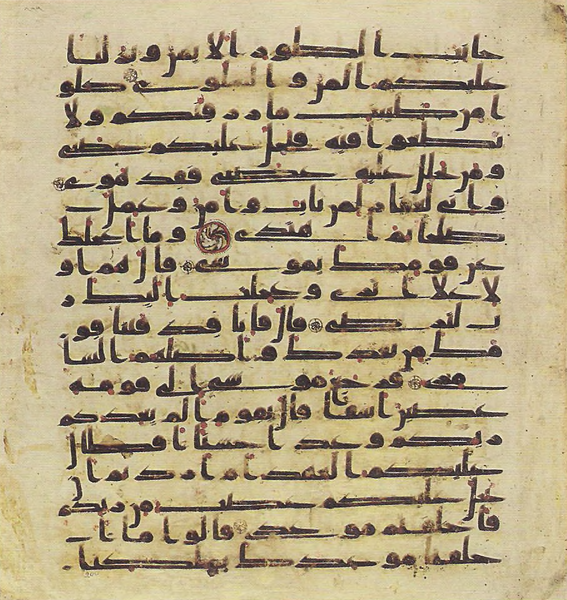 جانب الطور الايمن ونزلنا
عليكم المن والسلوى كلو
ا من طيبت ما رزقنكم ولا
تطغوا فيه فيحل عليكم غضبي
ومن يحلل عليه غضبي فقد هوى
واني لغفار لمن تاب وامن وعمل
صلحا ثم اهتدى وما اعجلك
عن قومك يموسى قال هم او
لا على اثري وعجلت اليك ر
ب لترضى قال فانا قد فتنا قو
مك من بعدك واضلهم السا
مري فرجع موسى الى قومه
غضبن اسفا قال يقوم الم يعدكم
ربكم وعدا حسنا افطال
عليكم العهد ام اردتم ان
يحل عليكم غضب من ربكم
فاخلفتم موعدي قالوا ما ا
خلفنا موعدك بملكنا